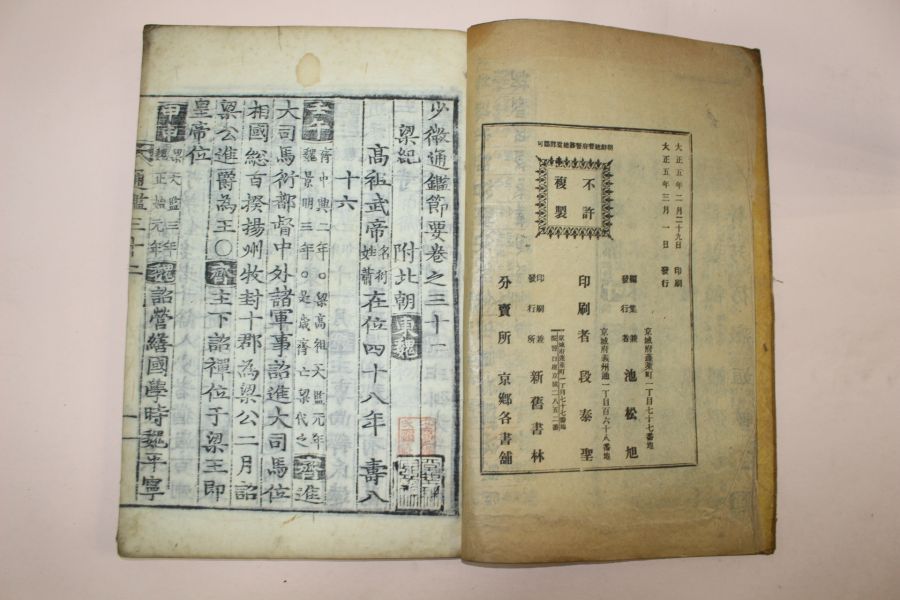 大正五年二月二十九日 印刷
大正五年三月一日 發行
不許
複製
京城府蓬萊町一丁目七十七番地
編集兼
發行者 池松旭
京城府義州通一丁目百六十八番地
印刷者 段泰聖
印刷兼
發行所 新舊書林
分賣所 京鄉各書舖
少微通鑑節要卷之三十一
梁紀 附北朝 東魏
高祖武帝 名衍 姓蕭 在位四十八年 壽八
十六
壬午 齊中興二年○梁高祖天監元年
魏景明三年○是歲齊亡梁代之 齊進
大司馬衍都督中外諸軍事詔進大司馬位
相國総百揆揚州牧封十郡為梁公二月詔
梁公進爵為王○齊主下詔禪位于梁王即
皇帝位
甲申 梁天監三年
魏正始元年 魏詔營繕國學時魏平寧
通鑑三十一